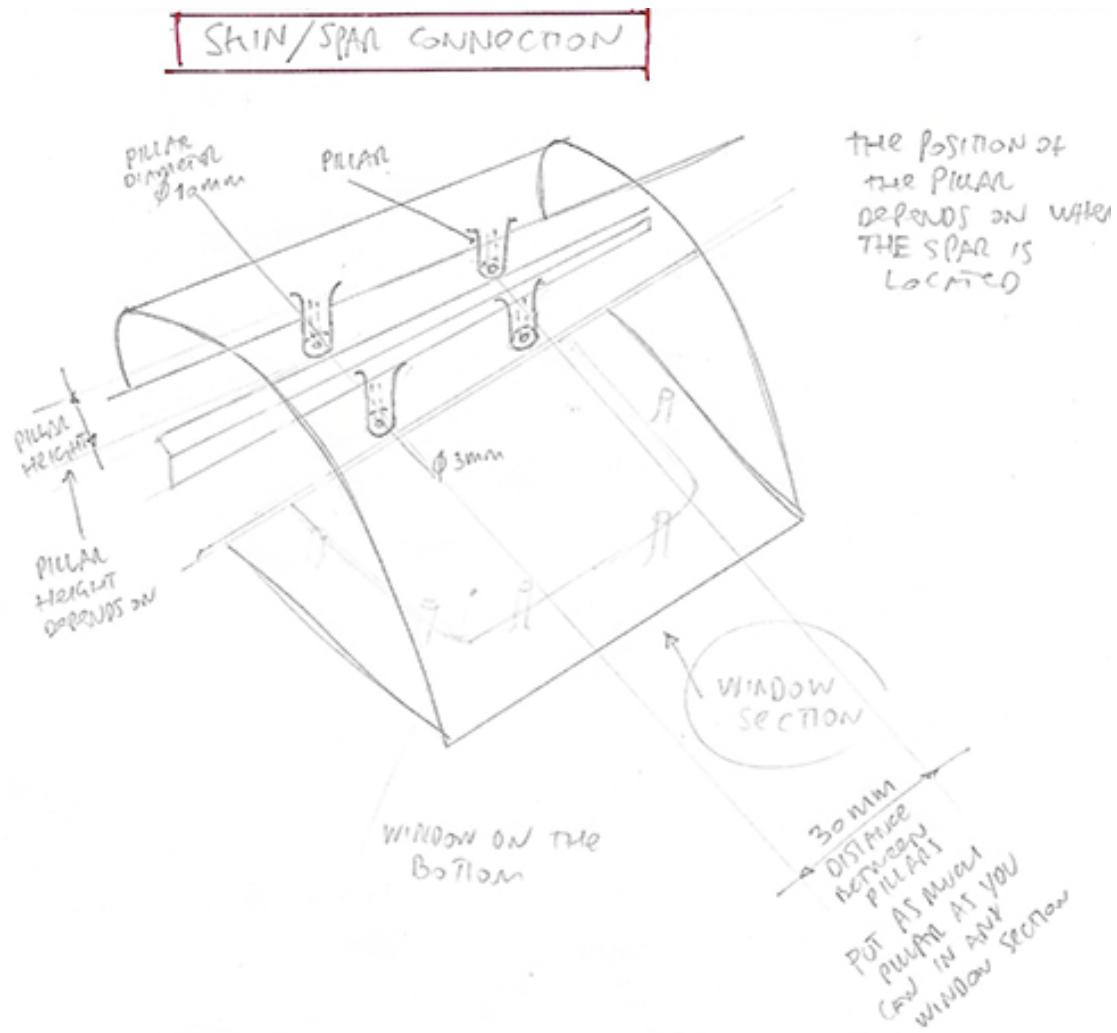 SKIN/SPAR CONNECTION
PILLAR
DIAMETER
Ø 10mm
PILLAR
THE POSITION OF
THE PILLAR
DEPENDS ON WHER
THE SPAR IS
LOCATED
PILLAR
HEIGHT
PILLAR
HEIGHT
DEPENDS ON
Ø 3mm
WINDOW
SECTION
WINDOW ON THE
BOTTOM
30mm
DISTANCE
BETWEEN
PILLARS
PUT AS MUCH
PILLAR AS YOU
CAN IN ANY
WINDOW SECTION